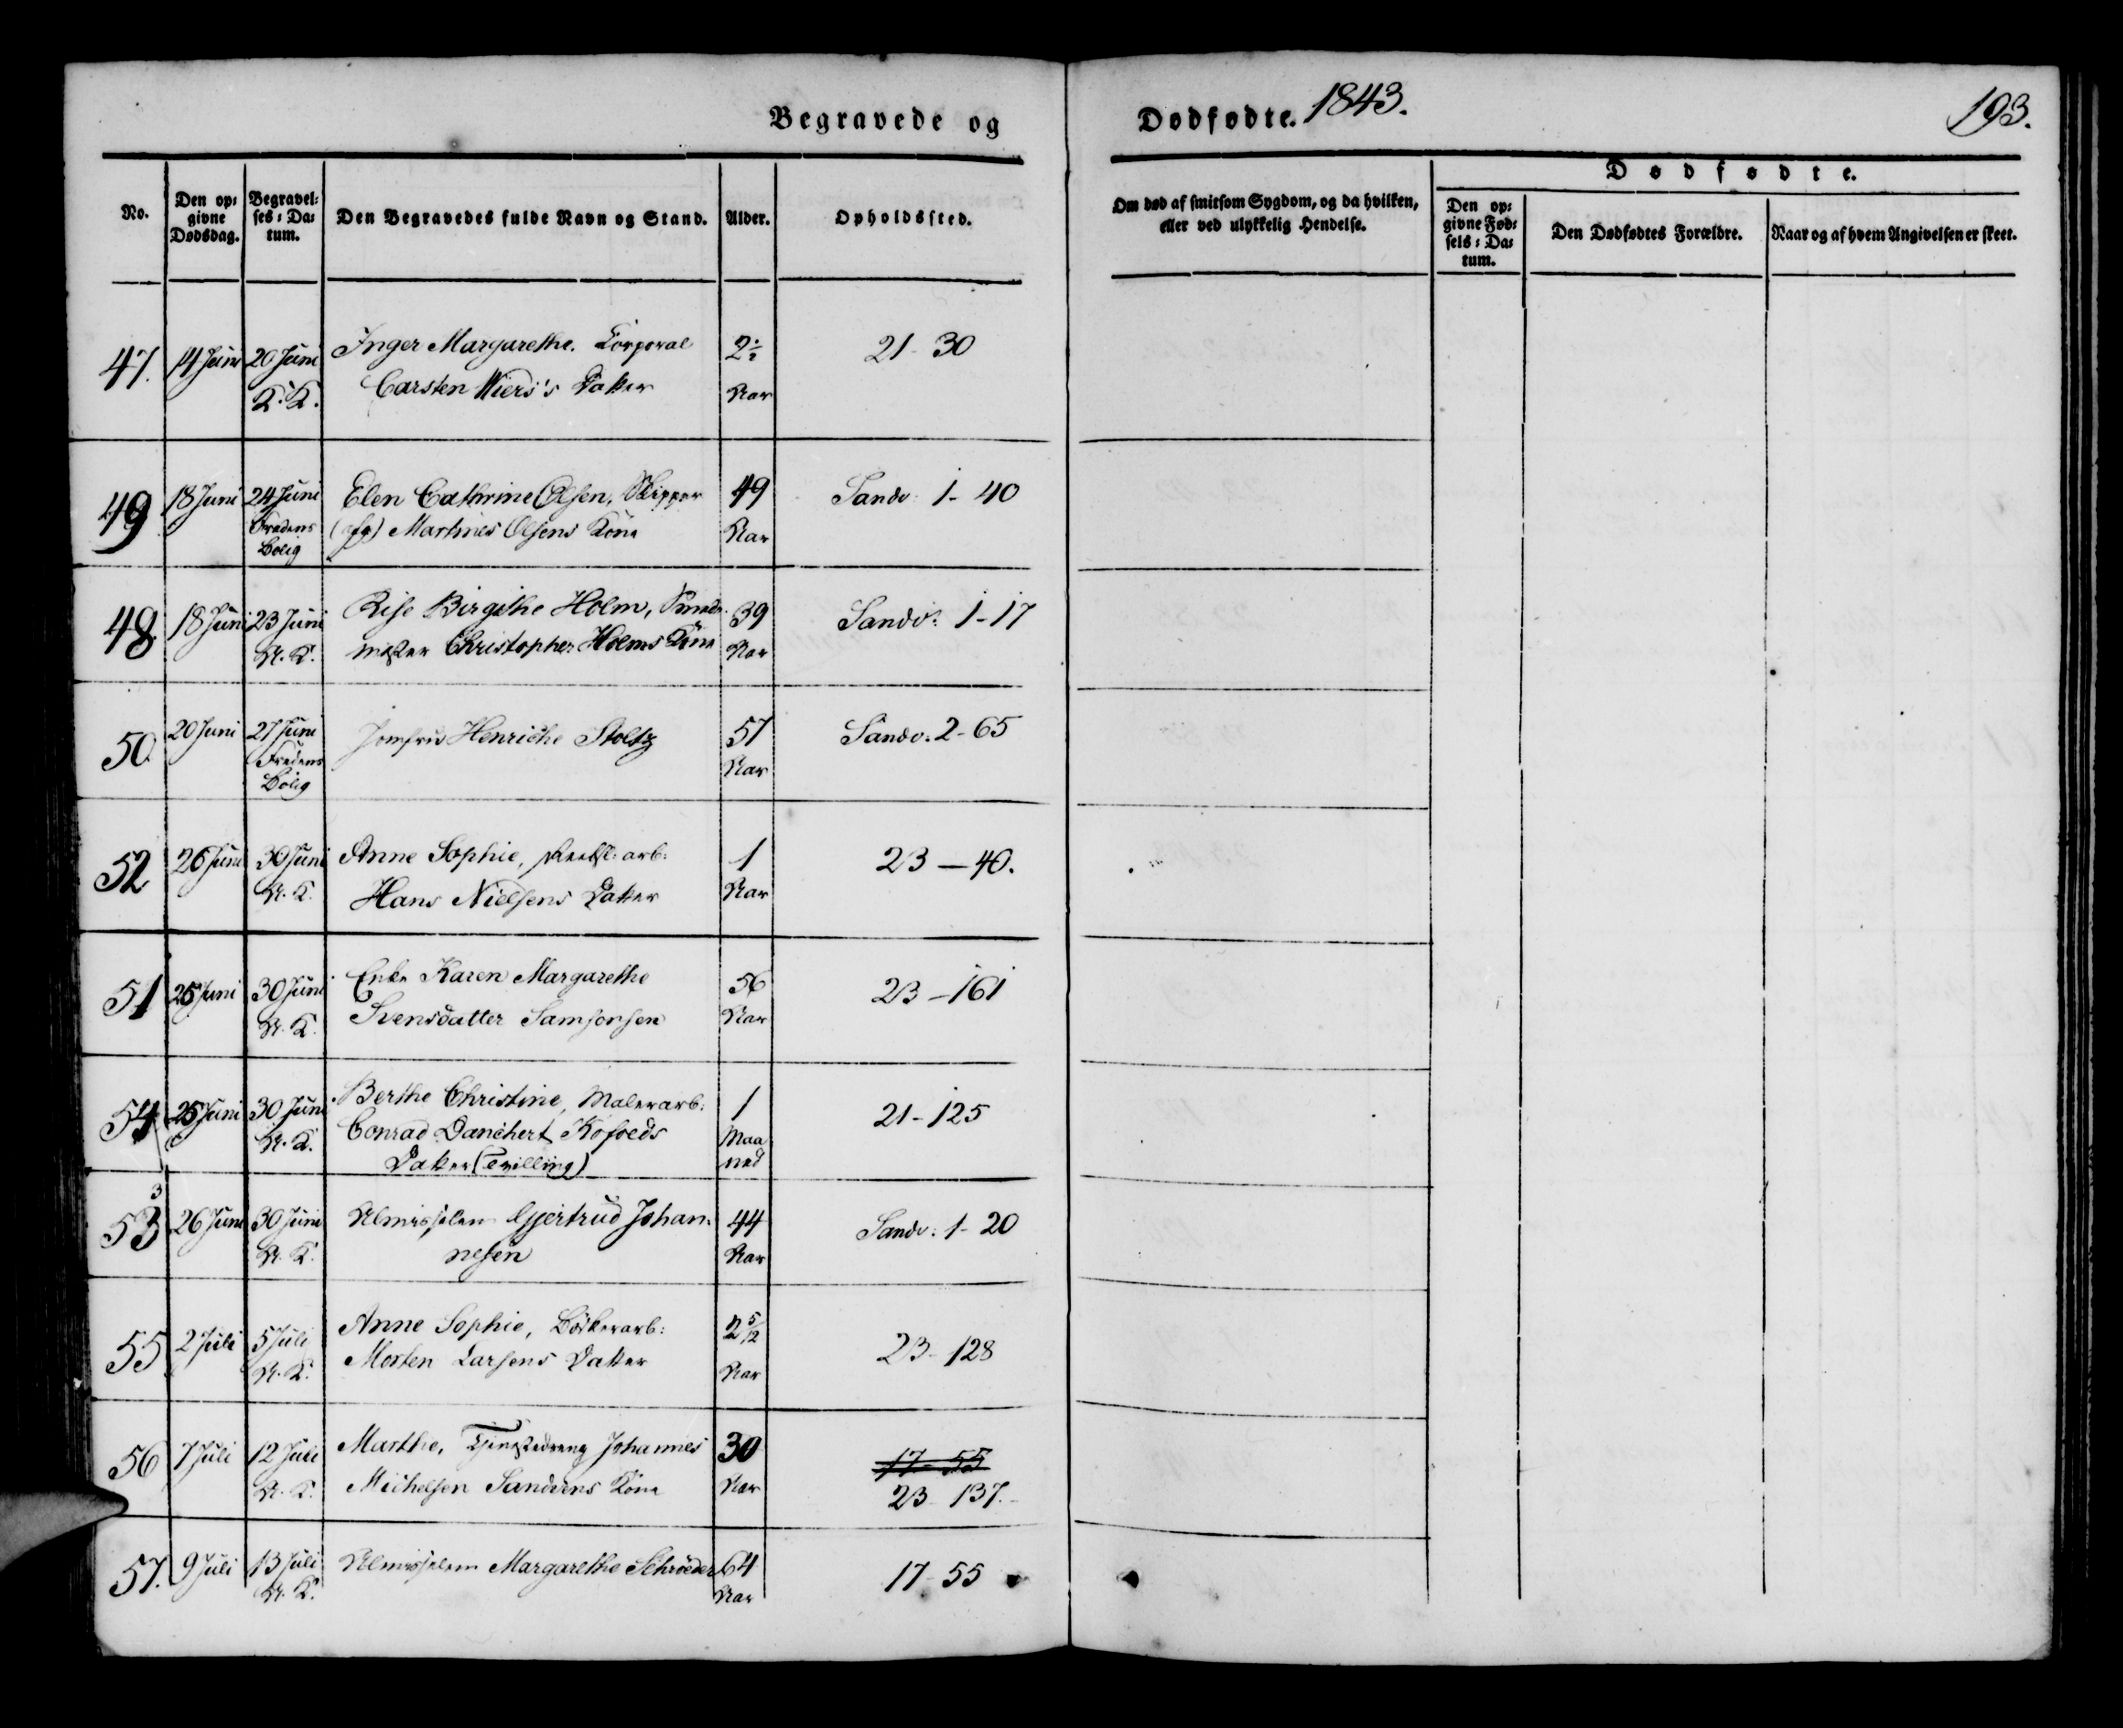 Begravede og
Dødfødte. 1843.
193.
No.
Den op-
givne
Dødsdag.
Begravel-
ses-Da-
tum.
Den Begravedes fulde Navn og Stand.
Alder.
Opholdssted.
Om død af smitsom Sygdom, og da hvilken,
eller ved ulykkelig Hendelse.
Dødfødte.
Den op-
givne Fød-
sels-Da-
tum.
Den Dødfødtes Forældre.
Naar og af hvem Angivelsen er skeet.
47. 14 Juni 20 Juni Inger Margarethe. Corporal 2½ 21-30
K. K. Carsten Wiers's Datter Aar
49 18 Juni 24 Juni Elen Cathrine Olsen, Skipper 49 Sandv: 1-40
Fredens (afg) Martines Olsens Kone Aar
Bolig
48 18 Juni 23 Juni Rise Birgithe Holm, 39 Sandv: 1-17
A. K. Christopher Holms Kone Aar
50. 20 Juni 27 Juni Jomfru Henriche Stoltz 57 Sandv: 2-65
Fredens Aar
Bolig
52 26 Juni 30 Juni Anne Sophie, arb: 1 23-40.
A. K. Hans Nielsens Datter Aar
51 25 Juni 30 Juni Enke Karen Margarethe 56 23-161
A. K. Svensdatter Samsonsen Aar
54 25 Juni 30 Juni Berthe Christine, Malerarb: 1 21-125
A. K. Conrad Danchert Kofoeds Maa
Datter (Tvilling) ned
3
53 26 Juni 30 Juni Almisselem Gjertrud Johan- 44 Sandv: 1-20
A. K. nesen Aar
55 2 Juli 5 Juli Anne Sophie, Bödkerarb: 2 5/12 23-128
A. K. Morten Larsens Datter Aar
56 7 Juli 12 Juli Marthe, Tjenestedreng Johannes 30 17-55
A. K. Michelsen Sandvens Kone Aar 23-137.
57. 9 Juli 13 Juli Almisselem Margarethe Schrøder 64 17-55
A. K. Aar